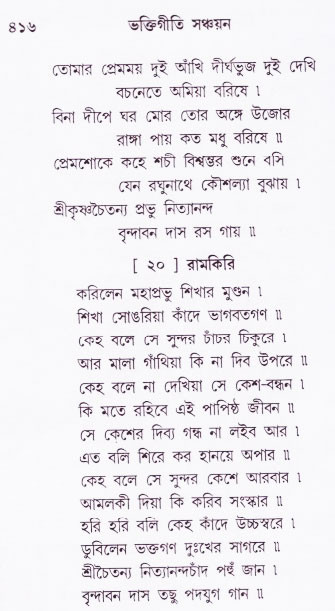 ৪১৬ ভক্তিগীতি সঞ্চয়ন
তোমার প্রেমময় দুই আঁখি দীর্ঘভুজ দুই দেখি
বচনেতে অমিয়া বরিষে ৷
বিনা দীপে ঘর মোর তোর অঙ্গে উজোর
রাঙ্গা পায় কত মধু বরিষে ৷৷
প্রেমশোকে কহে শচী বিশ্বম্ভর শুনে বসি
যেন রঘুনাথে কৌশল্যা বুঝায় ৷
শ্রীকৃষ্ণচৈতন্য প্রভু নিত্যানন্দ
বৃন্দাবন দাস রস গায় ৷৷
[ ২০ ] রামকিরি
করিলেন মহাপ্রভু শিখার মুণ্ডন ৷
শিখা সোঙরিয়া কাঁদে ভাগবতগণ ৷৷
কেহ বলে সে সুন্দর চাঁচর চিকুরে ৷
আর মালা গাঁথিয়া কি না দিব উপরে ৷৷
কেহ বলে না দেখিয়া সে কেশ-বন্ধন ৷
কি মতে রহিবে এই পাপিষ্ঠ জীবন ৷৷
সে কেশের দিব্য গন্ধ না লইব আর ৷
এত বলি শিরে কর হানয়ে অপার ৷৷
কেহ বলে সে সুন্দর কেশে আরবার ৷
আমলকী দিয়া কি করিব সংস্কার ৷৷
হরি হরি বলি কেহ কাঁদে উচ্চস্বরে ৷
ডুবিলেন ভক্তগণ দুঃখের সাগরে ৷৷
শ্রীচৈতন্য নিত্যানন্দচাঁদ পহুঁ জান ৷
বৃন্দাবন দাস তছু পদযুগ গান ৷৷